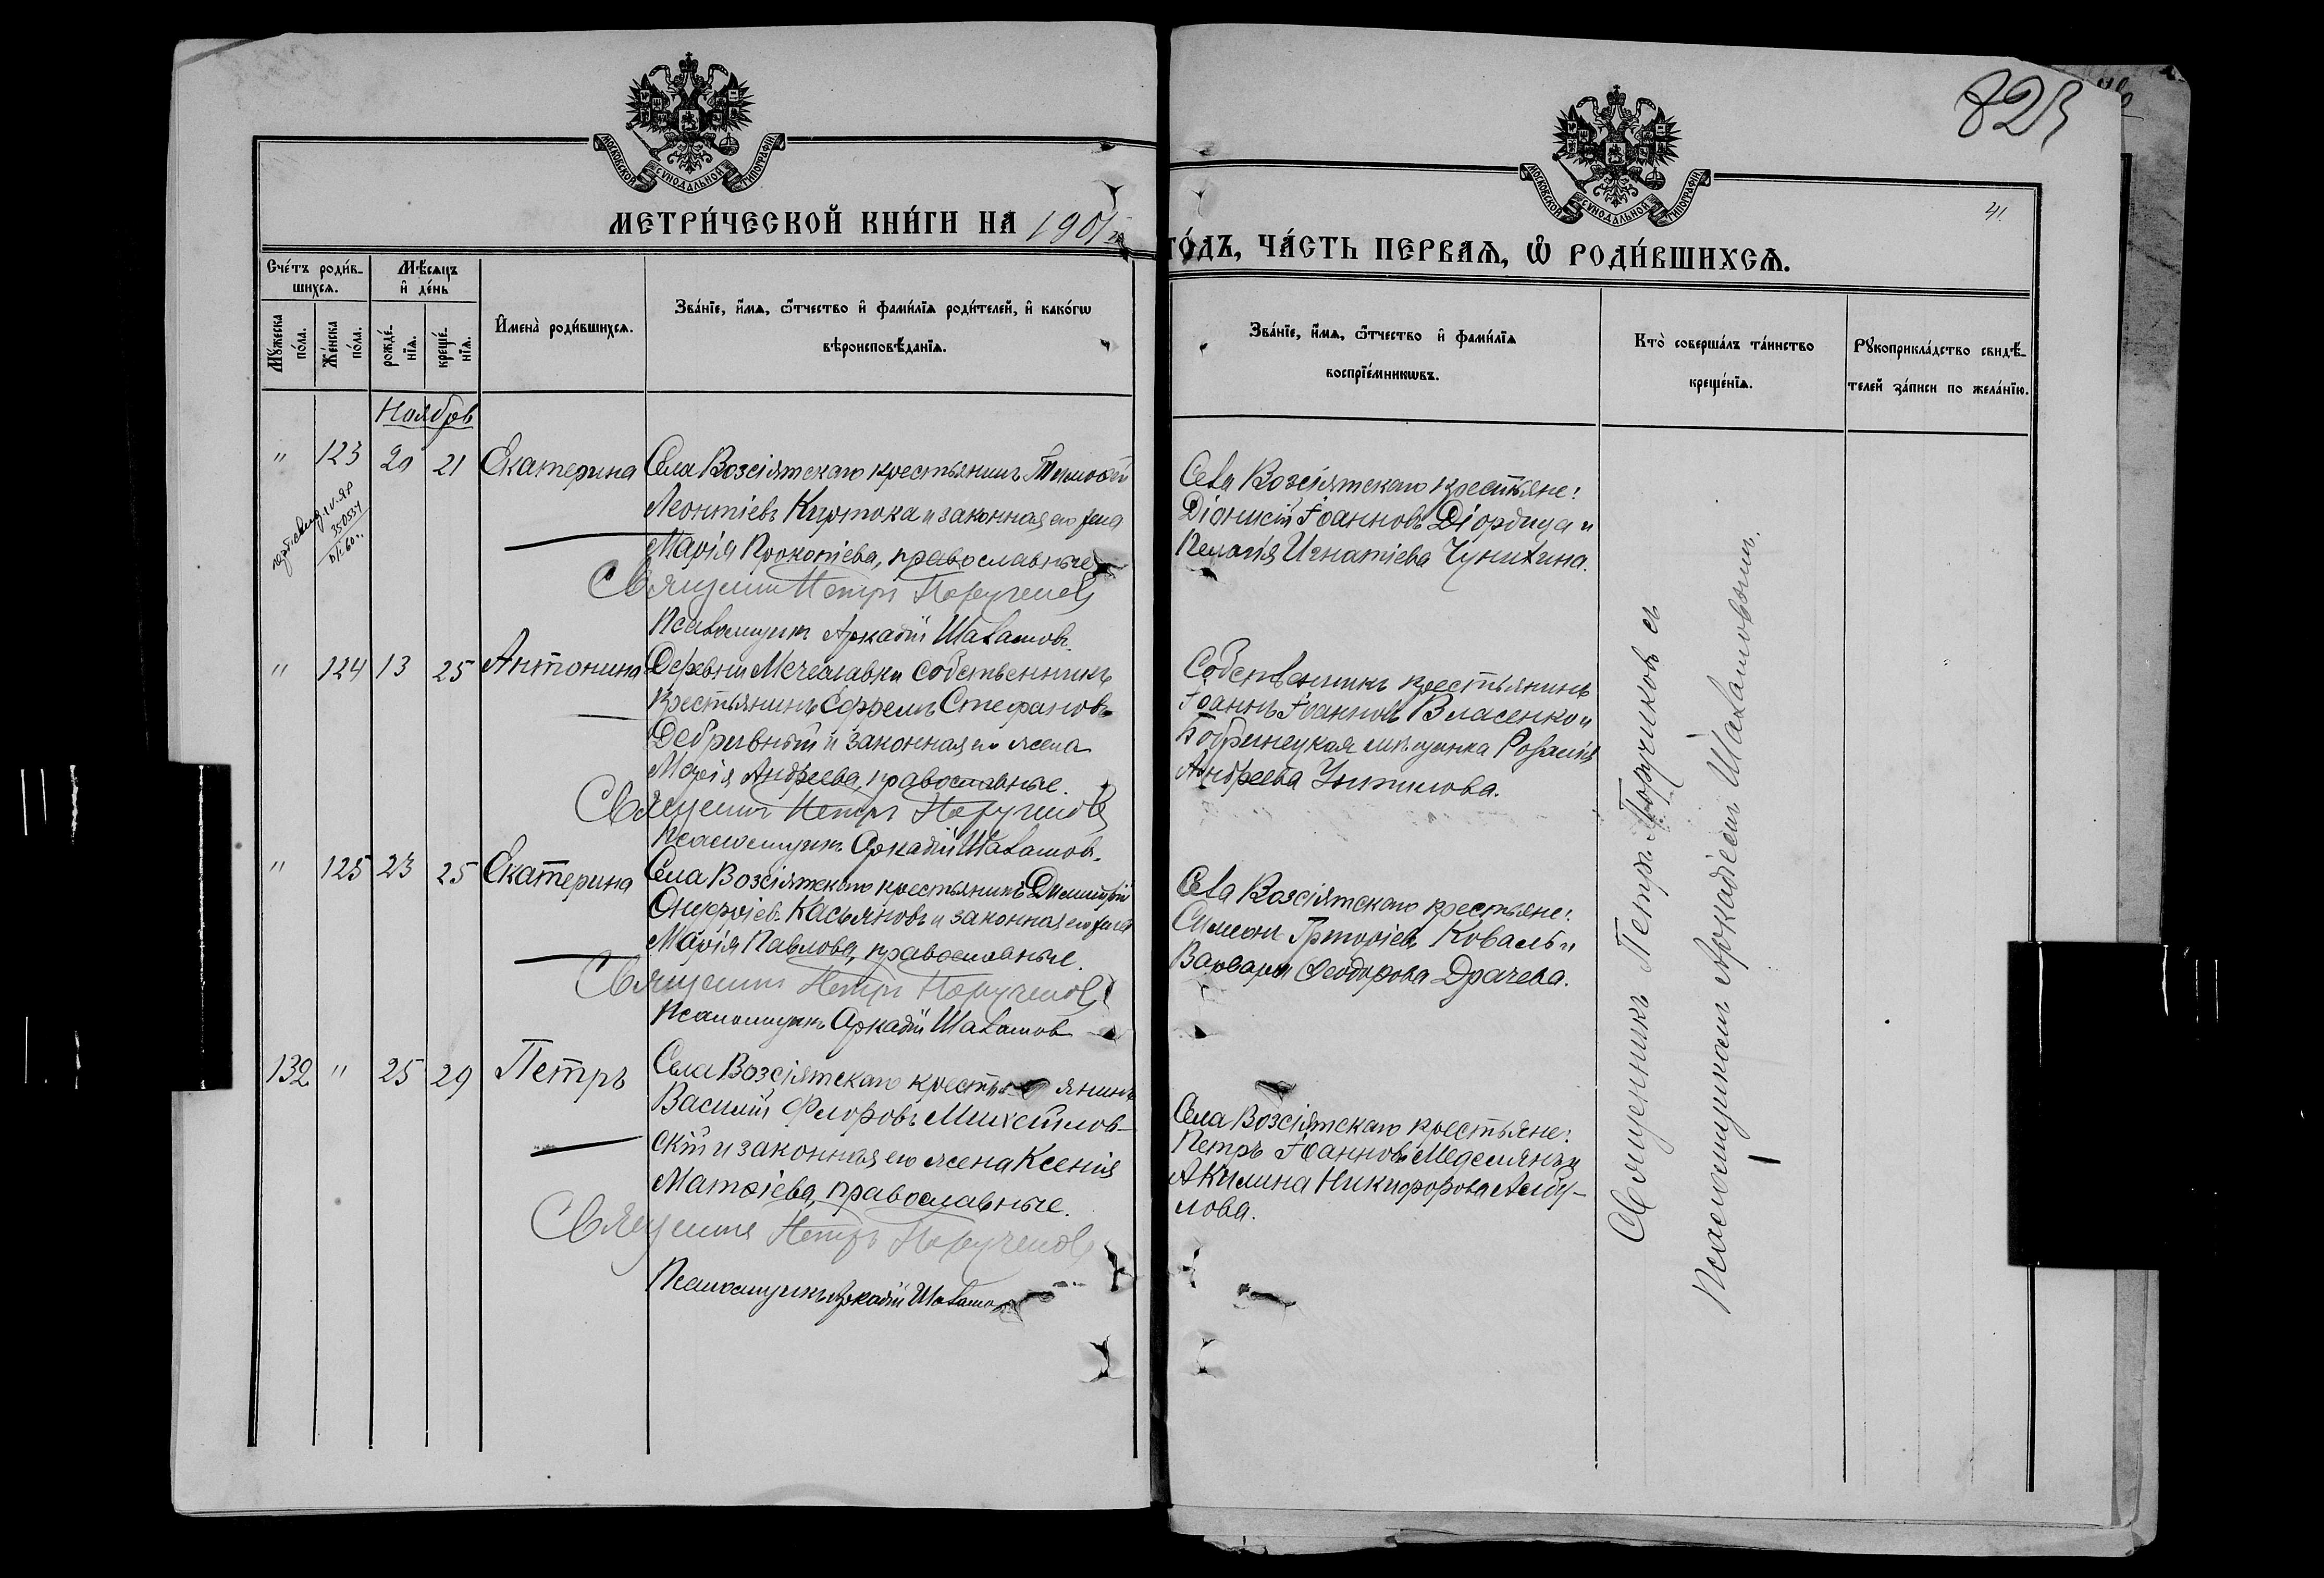 823
МОСКОВСКОЙ СѴНОДАЛЬНОЙ ТИПОГРАФІИ
МОСКОВСКОЙ СѴНОДАЛЬНОЙ ТИПОГРАФІИ
41.
МЕТРИ́ЧЕСКОЙ КНИ́ГИ НА 1901
ГО́ДЪ, ЧА́СТЬ ПЕРВАѦ, Ѡ҆ РОДИ́ВШИХСѦ.
Сче́тъ роди́в-
шихсѧ.
Мꙋ́жеска
по́ла.
Же́нска
по́ла.
Мѣ́сѧцъ
и҆ де́нь
рожде́-
нїѧ.
креще́-
нїѧ.
И҆мена̀ роди́вшихсѧ.
Зва́нїе, и҆́мѧ, ѻ҆́тчество и҆ фами́лїѧ роди́телей, и҆ како́гѡ
вѣроисповѣ́данїѧ.
Зва́нїе, и҆́мѧ, ѻ҆́тчество и҆ фами́лїѧ
воспрїе́мникѡвъ.
Кто̀ соверша́лъ та́инство
креще́нїѧ.
Рꙋкоприкла́дство свидѣ́-
телей за́писи по жела́нїю.
Ноябрь
" 123 20 21 Екатерина
Села Возсіятскаго крестьянинъ Тимофей
Леонтіевъ Киртока и законная его жена
Марія Прокопіева, православные
Священникъ Петръ Поручиковъ
Псаломщикъ Аркадій Шаламовъ.
350534
Села Возсіятскаго крестьяне:
Діонисій Іоанновъ Діордица и
Пелагія Игнатіева Чунихина.
" 124 13 25 Антонина
Деревни Мечеславки собственникъ
крестьянинъ Ефремъ Стефановъ
Добрывный и законная его жена
Марія Андреева, православные.
Священникъ Петръ Поручиковъ
Псаломщикъ Аркадій Шаламовъ.
Собственникъ крестьянинъ
Іоаннъ Іоанновъ Власенко и
Бобринецкая мѣщанка Розалія
Андреева
" 125 23 25 Екатерина
Села Возсіятскаго крестьянинъ Димитрій
Онуфріевъ Касьяновъ и законная его жена
Марія Павлова, православные.
Священникъ Петръ Поручиковъ
Псаломщикъ Аркадій Шаламовъ
Села Возсіятскаго крестьяне:
Симеонъ Григоріевъ Коваль и
Варвара Феодорова Драчева.
132 " 25 29 Петръ
Села Возсіятскаго крестьянинъ
Василій Флоровъ Михайлов-
скій и законная его жена Ксенія
Матфіева, православные.
Священникъ Петръ Поручиковъ
Псаломщикъ Аркадій Шаламовъ
Села Возсіятскаго крестьяне:
Петръ Іоанновъ Медемянъ и
Акилина Никифорова
лова.
Священникъ Петръ Поручиковъ съ
Псаломщикомъ Аркадіемъ Шаламовымъ.